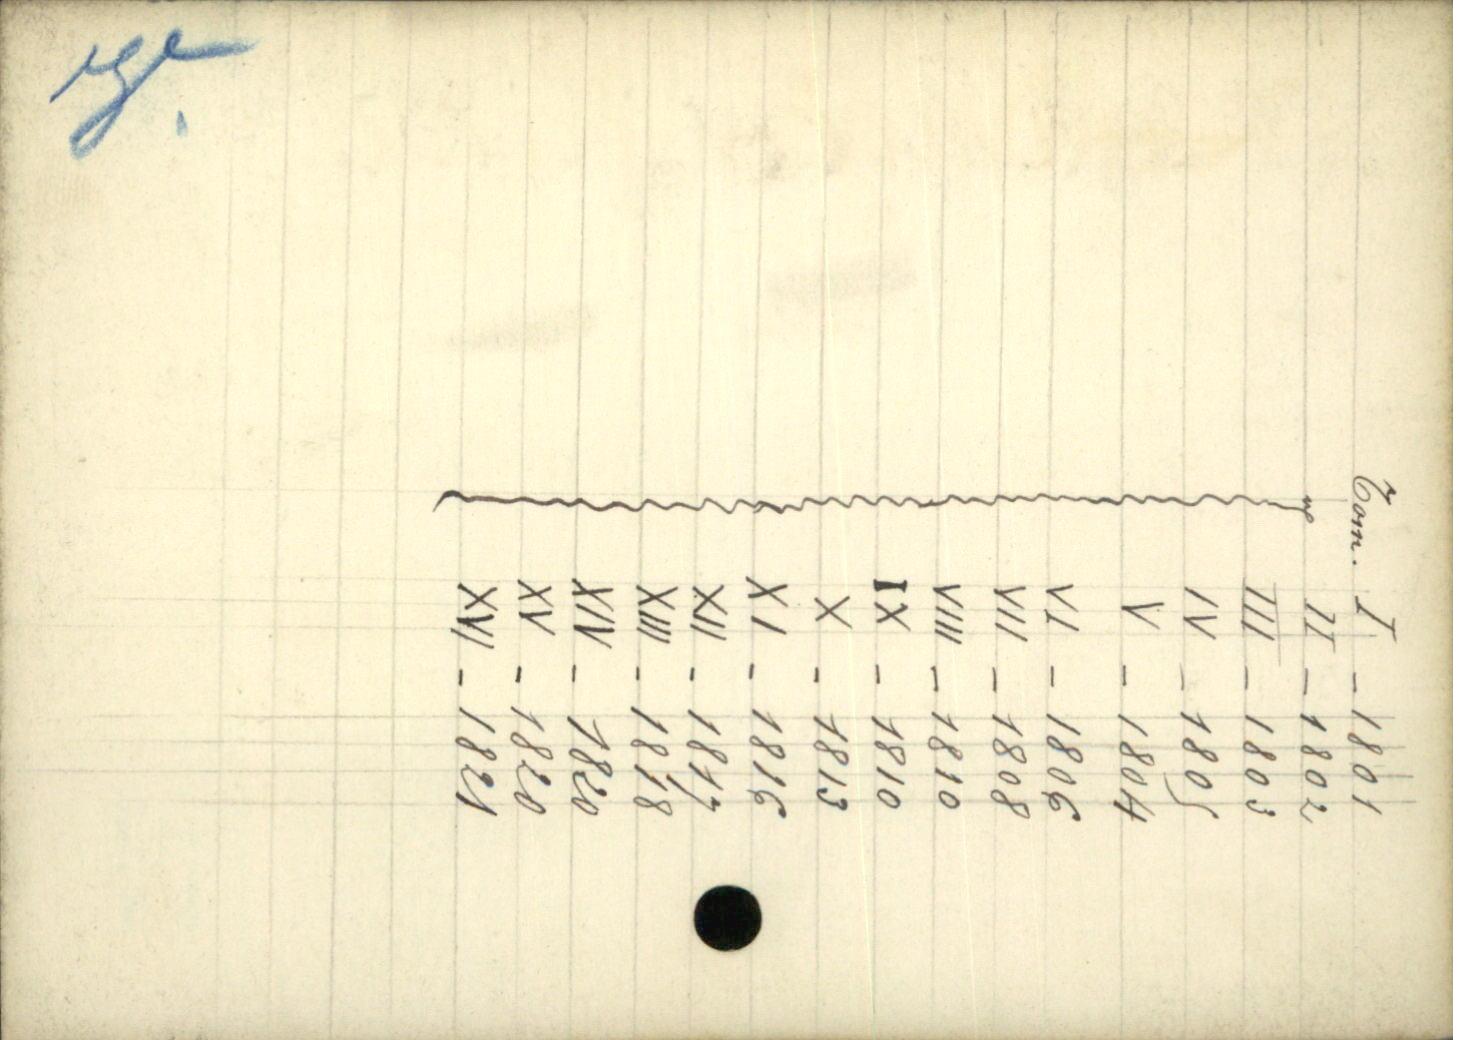 Tom. I - 1801
II - 1802
III - 1803
IV - 1805
V - 1804
VI - 1806
VII - 1808
VIII - 1810
IX - 1810
X - 1813
XI - 1816
XII - 1817
XIII - 1818
XIV - 1820
XV - 1820
XVI - 1821